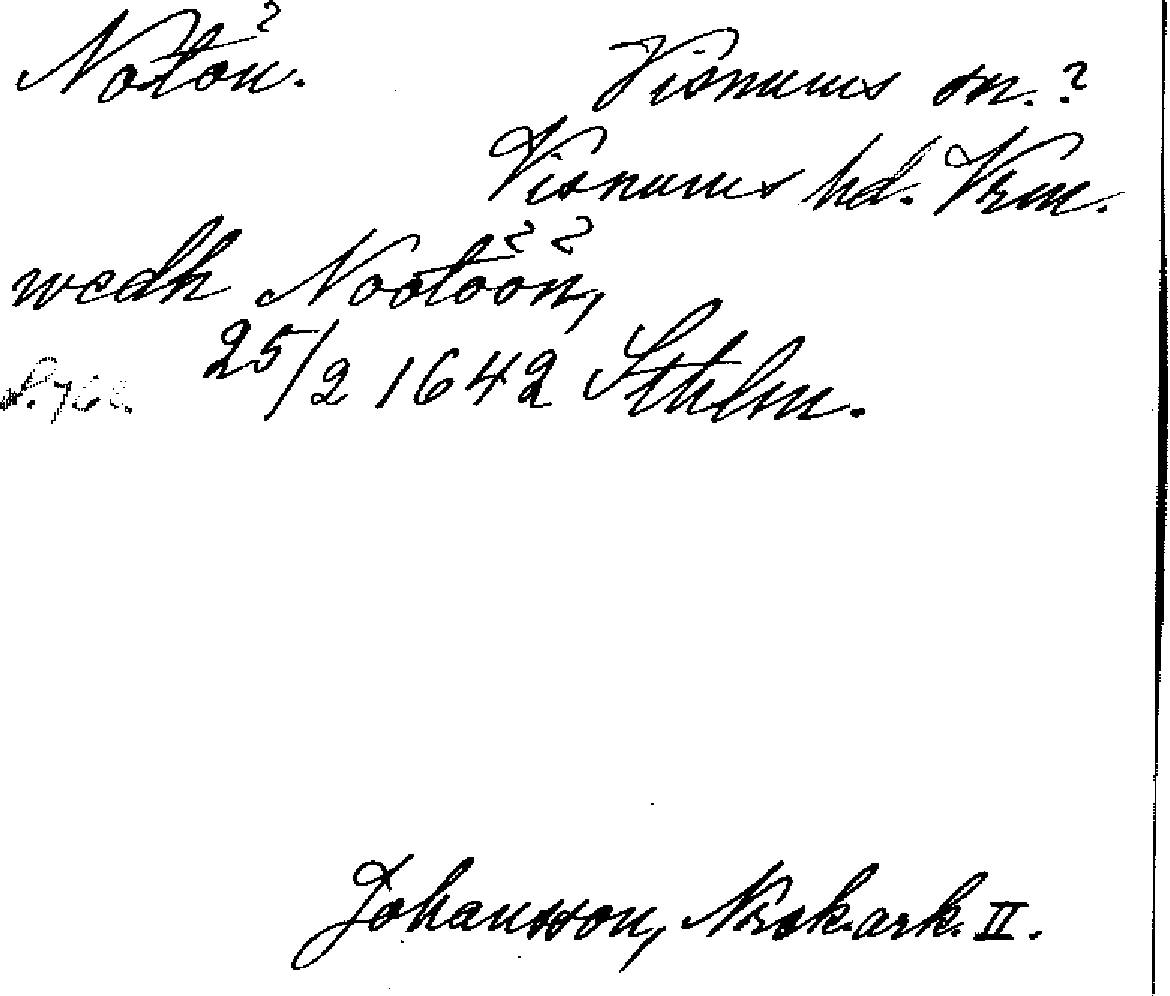 Notön.
Visnums sn.?
Visnums hd. Vrm.
wedh Nootöön,
25/2 1642 Sthlm.
Johansson, Norsk.ark. II.